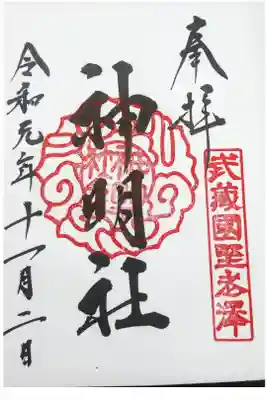 奉拝
武蔵國野老澤
神明社
令和元年十一月二日